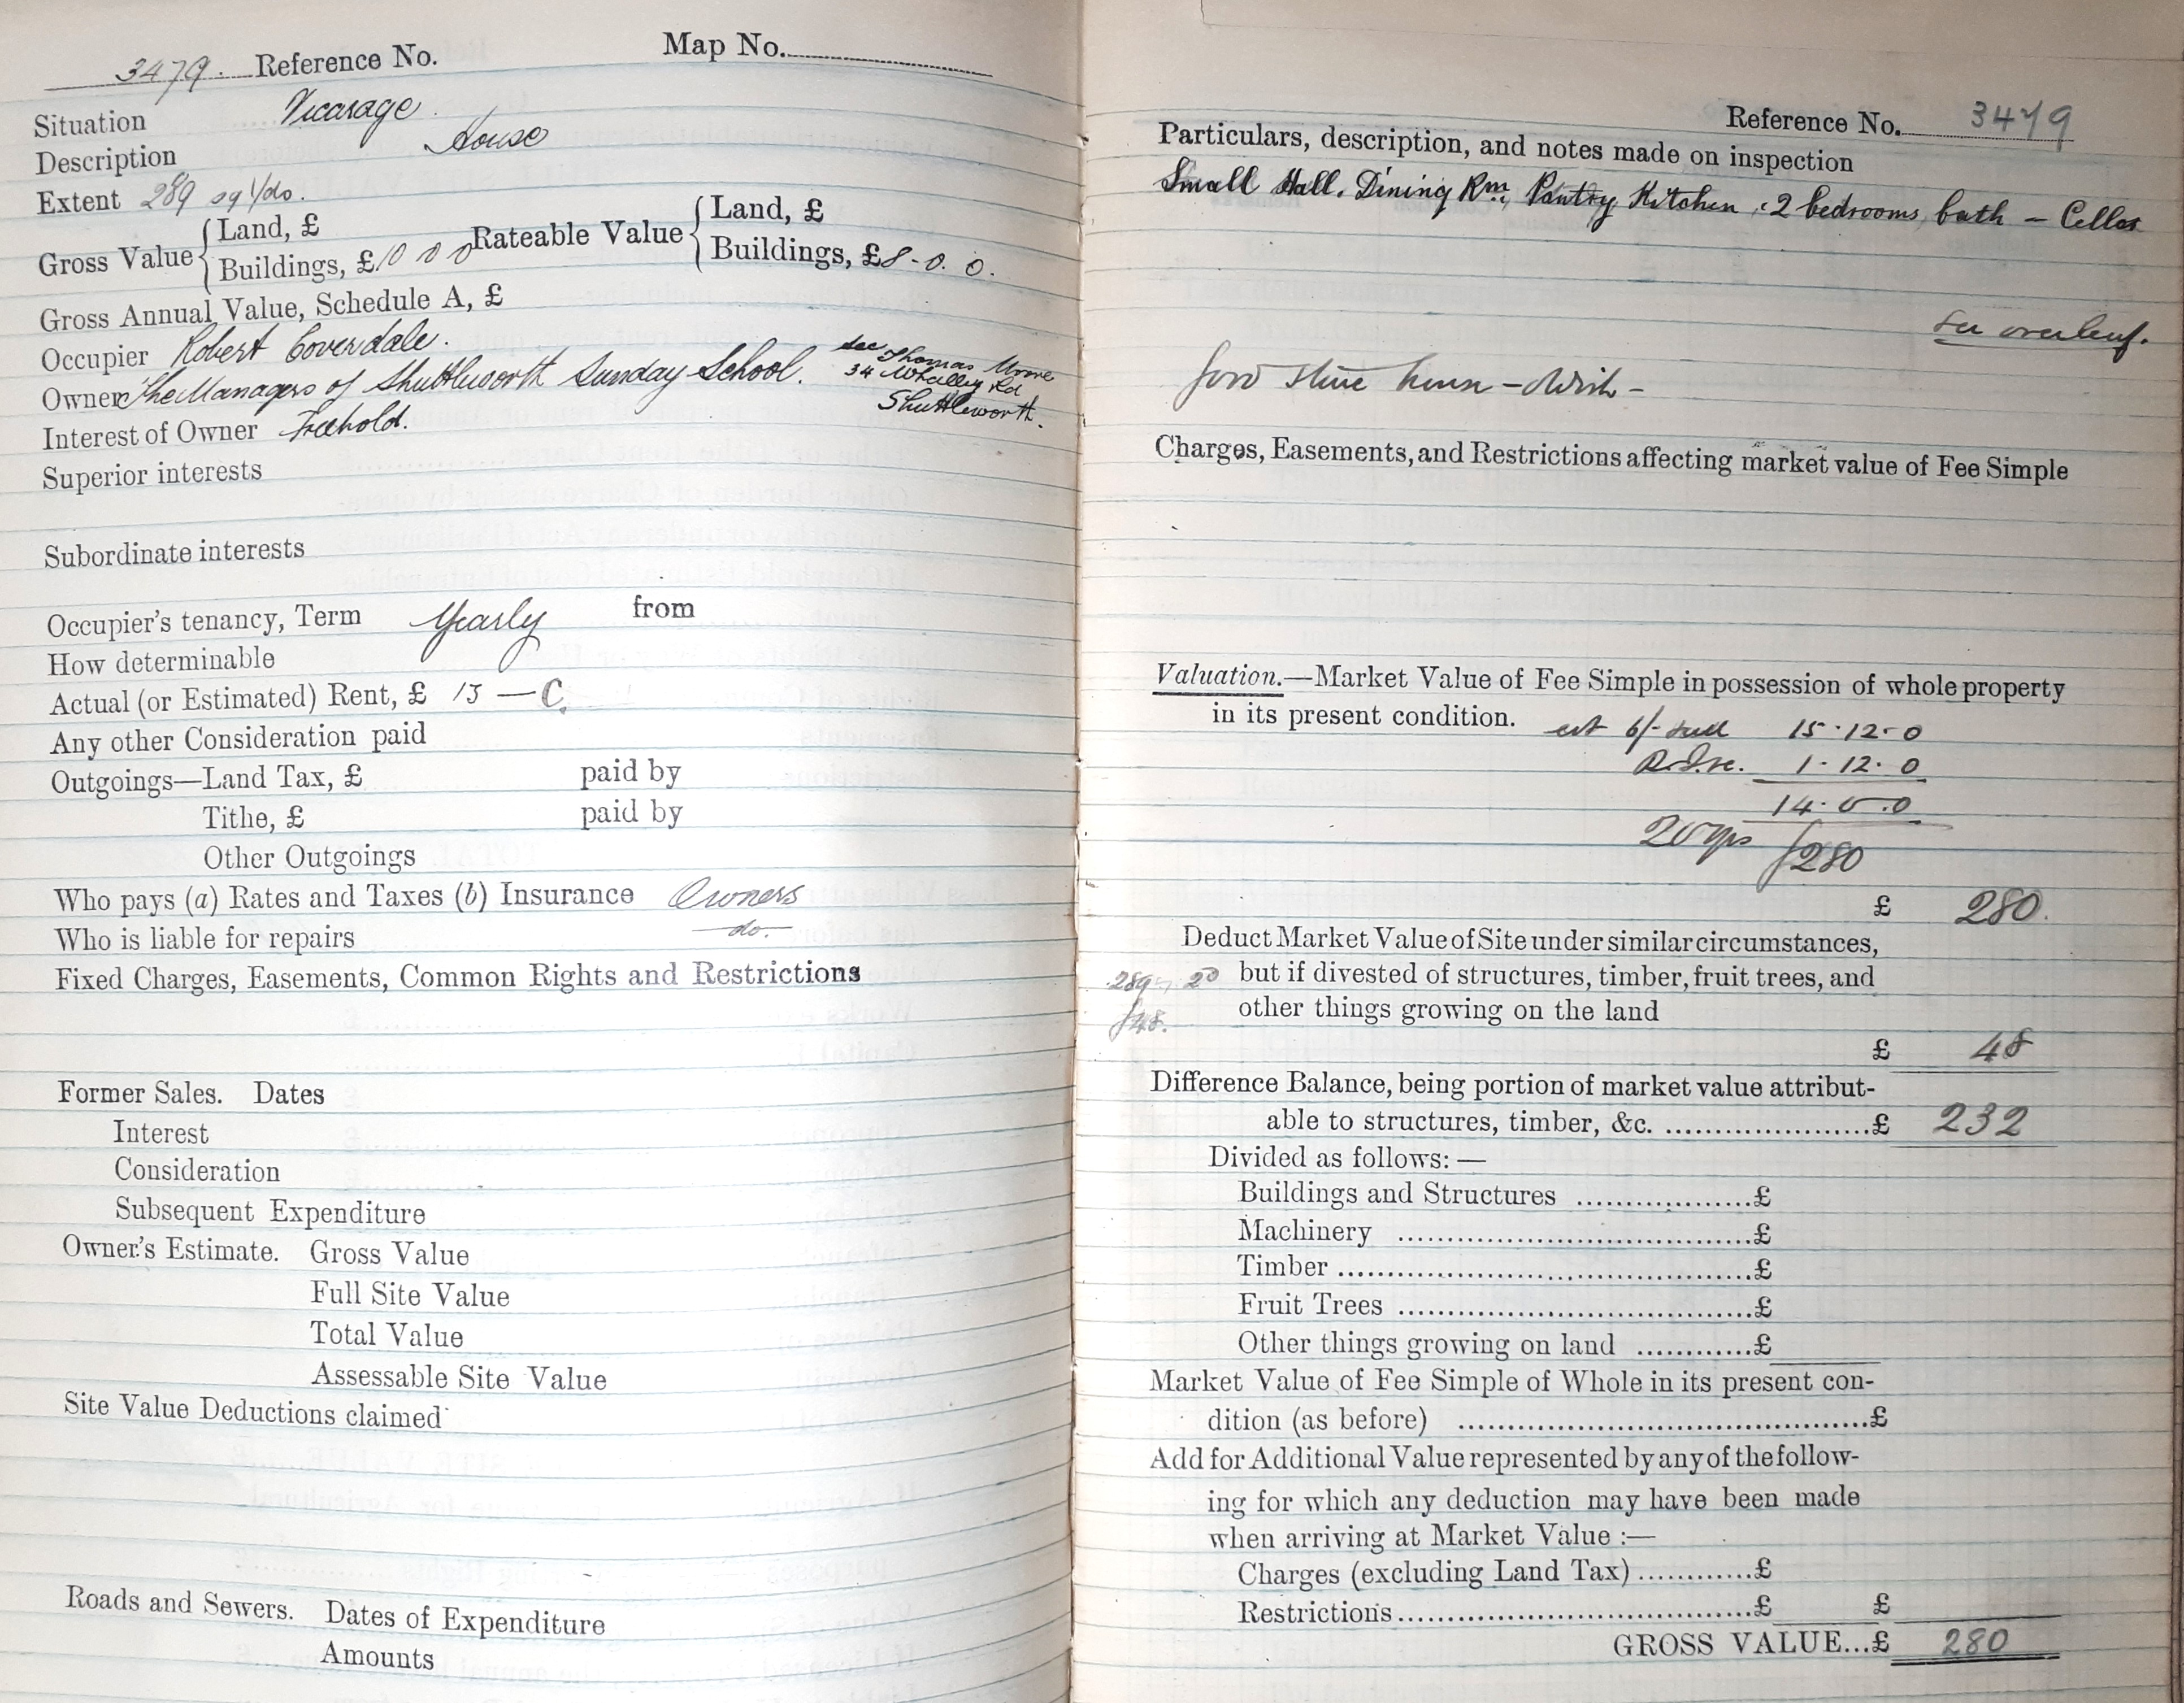 3479. Reference No. Map No.
Situation Vicarage
Description House
Extent 289 sq Yds.
Gross Value { Land, £
Buildings, £10 0 0
Rateable Value { Land, £
Buildings, £8-0.0.
Gross Annual Value, Schedule A, £
Occupier Robert Coverdale.
Owner The Managers of Shuttleworth Sunday School. sec Thomas Moore
34 Whalley Rd
Shuttleworth.
Interest of Owner Freehold.
Superior interests
Subordinate interests
Occupier's tenancy, Term Yearly from
How determinable
Actual (or Estimated) Rent, £ 13 — C.
Any other Consideration paid
Outgoings—Land Tax, £ paid by
Tithe, £ paid by
Other Outgoings
Who pays (a) Rates and Taxes (b) Insurance Owners
Who is liable for repairs do.
Fixed Charges, Easements, Common Rights and Restrictions
Former Sales. Dates
Interest
Consideration
Subsequent Expenditure
Owner's Estimate. Gross Value
Full Site Value
Total Value
Assessable Site Value
Site Value Deductions claimed
Roads and Sewers. Dates of Expenditure
Amounts
Reference No. 3479
Particulars, description, and notes made on inspection
Small Hall. Dining Rm, Pantry Kitchen, 2 bedrooms, bath — Cellar
see overleaf.
stone house -
Charges, Easements, and Restrictions affecting market value of Fee Simple
Valuation.—Market Value of Fee Simple in possession of whole property
in its present condition. est 6/- 15.12.0
1.12.0
14.0.0
20 yrs £280
£ 280.
Deduct Market Value of Site under similar circumstances,
289 20 but if divested of structures, timber, fruit trees, and
£48. other things growing on the land
£ 48
Difference Balance, being portion of market value attribut-
able to structures, timber, &c. ......................£ 232
Divided as follows: —
Buildings and Structures ..................£
Machinery ....................................£
Timber ..........................................£
Fruit Trees ....................................£
Other things growing on land ............£
Market Value of Fee Simple of Whole in its present con-
dition (as before) ..........................................£
Add for Additional Value represented by any of the follow-
ing for which any deduction may have been made
when arriving at Market Value :—
Charges (excluding Land Tax)............£
Restrictions....................................£ £
GROSS VALUE...£ 280